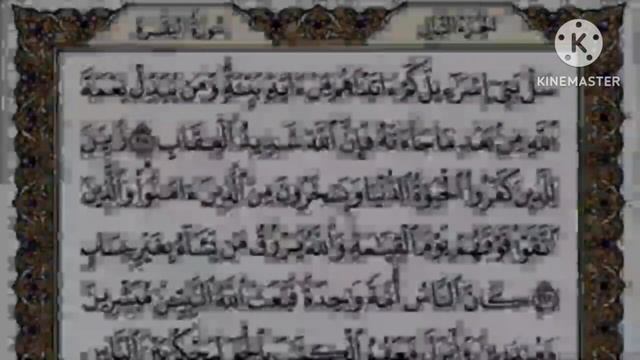 الجزء الثاني
سورة البقرة
K
KINEMASTER
سَلْ بَنِىٓ إِسْرَٰٓءِيلَ كَمْ ءَاتَيْنَٰهُم مِّنْ ءَايَةٍۭ بَيِّنَةٍۗ وَمَن يُبَدِّلْ نِعْمَةَ
ٱللَّهِ مِنۢ بَعْدِ مَا جَآءَتْهُ فَإِنَّ ٱللَّهَ شَدِيدُ ٱلْعِقَابِ زُيِّنَ
لِلَّذِينَ كَفَرُوا۟ ٱلْحَيَوٰةُ ٱلدُّنْيَا وَيَسْخَرُونَ مِنَ ٱلَّذِينَ ءَامَنُوا۟ۘ وَٱلَّذِينَ
ٱتَّقَوْا۟ فَوْقَهُمْ يَوْمَ ٱلْقِيَٰمَةِۗ وَٱللَّهُ يَرْزُقُ مَن يَشَآءُ بِغَيْرِ حِسَابٍ
كَانَ ٱلنَّاسُ أُمَّةً وَٰحِدَةً فَبَعَثَ ٱللَّهُ ٱلنَّبِيِّـۧنَ مُبَشِّرِينَ
وَأَنزَلَ مَعَهُمُ ٱلْكِتَٰبَ بِٱلْحَقِّ لِيَحْكُمَ بَيْنَ ٱلنَّاسِ